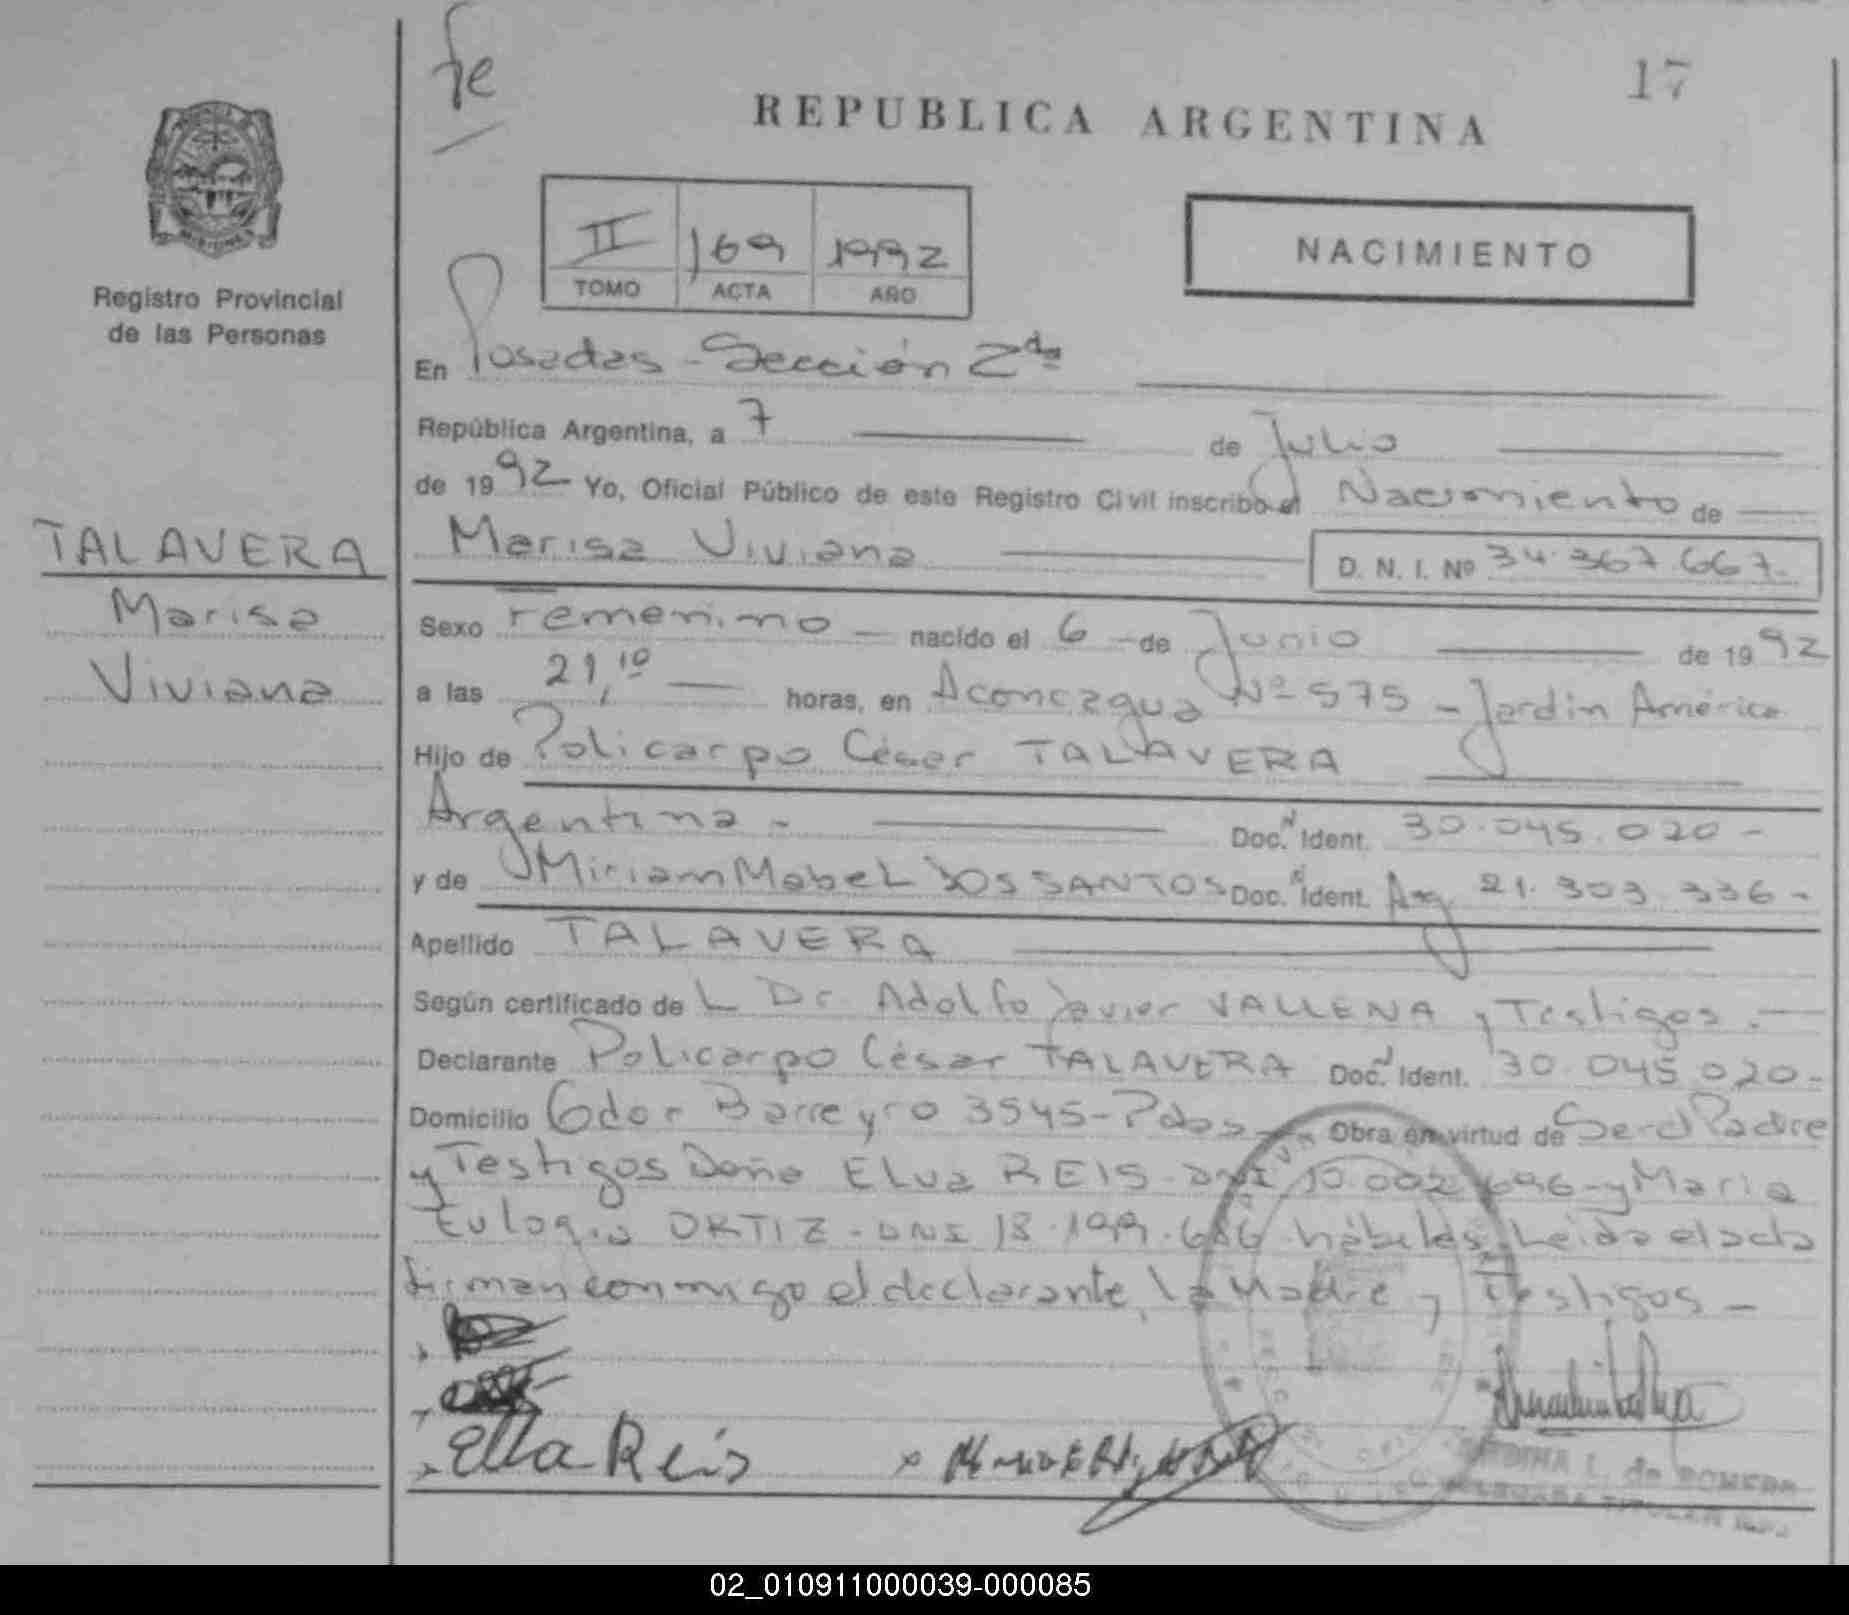 fe
17
REPUBLICA ARGENTINA
II 169 1992
TOMO ACTA AÑO
NACIMIENTO
Registro Provincial
de las Personas
En Posadas - Sección 2da
República Argentina, a 7 de Julio
de 1992 Yo, Oficial Público de este Registro Civil inscribo el Nacimiento de
TALAVERA
Marisa
Viviana
Marisa Viviana D. N. I. Nº 34.367.667-
Sexo Femenino - nacido el 6 - de Junio de 1992
a las 21,10 horas, en Aconcagua Nº 575 - Jardín América
Hijo de Policarpo César TALAVERA
Argentina - Doc. Ident. 30.045.020-
y de Miriam Mabel DOS SANTOS Doc. Ident. Arg 21.303.336-
Apellido TALAVERA
Según certificado del Dr. Adolfo Javier VALLENA y Testigos.-
Declarante Policarpo César TALAVERA Doc. Ident. 30.045.020-
Domicilio Gdor Barreyro 3545-Pdas- Obra en virtud de Ser el Padre
y Testigos Doña Elva REIS - DNI 10.002.696 - y Maria
Eulogia ORTIZ - DNI 18.199.686 hábiles, Leida el acta
firman conmigo el declarante, la Madre y Testigos -
Elba Reis
L. de ROMERO
TITULAR
02_010911000039-000085